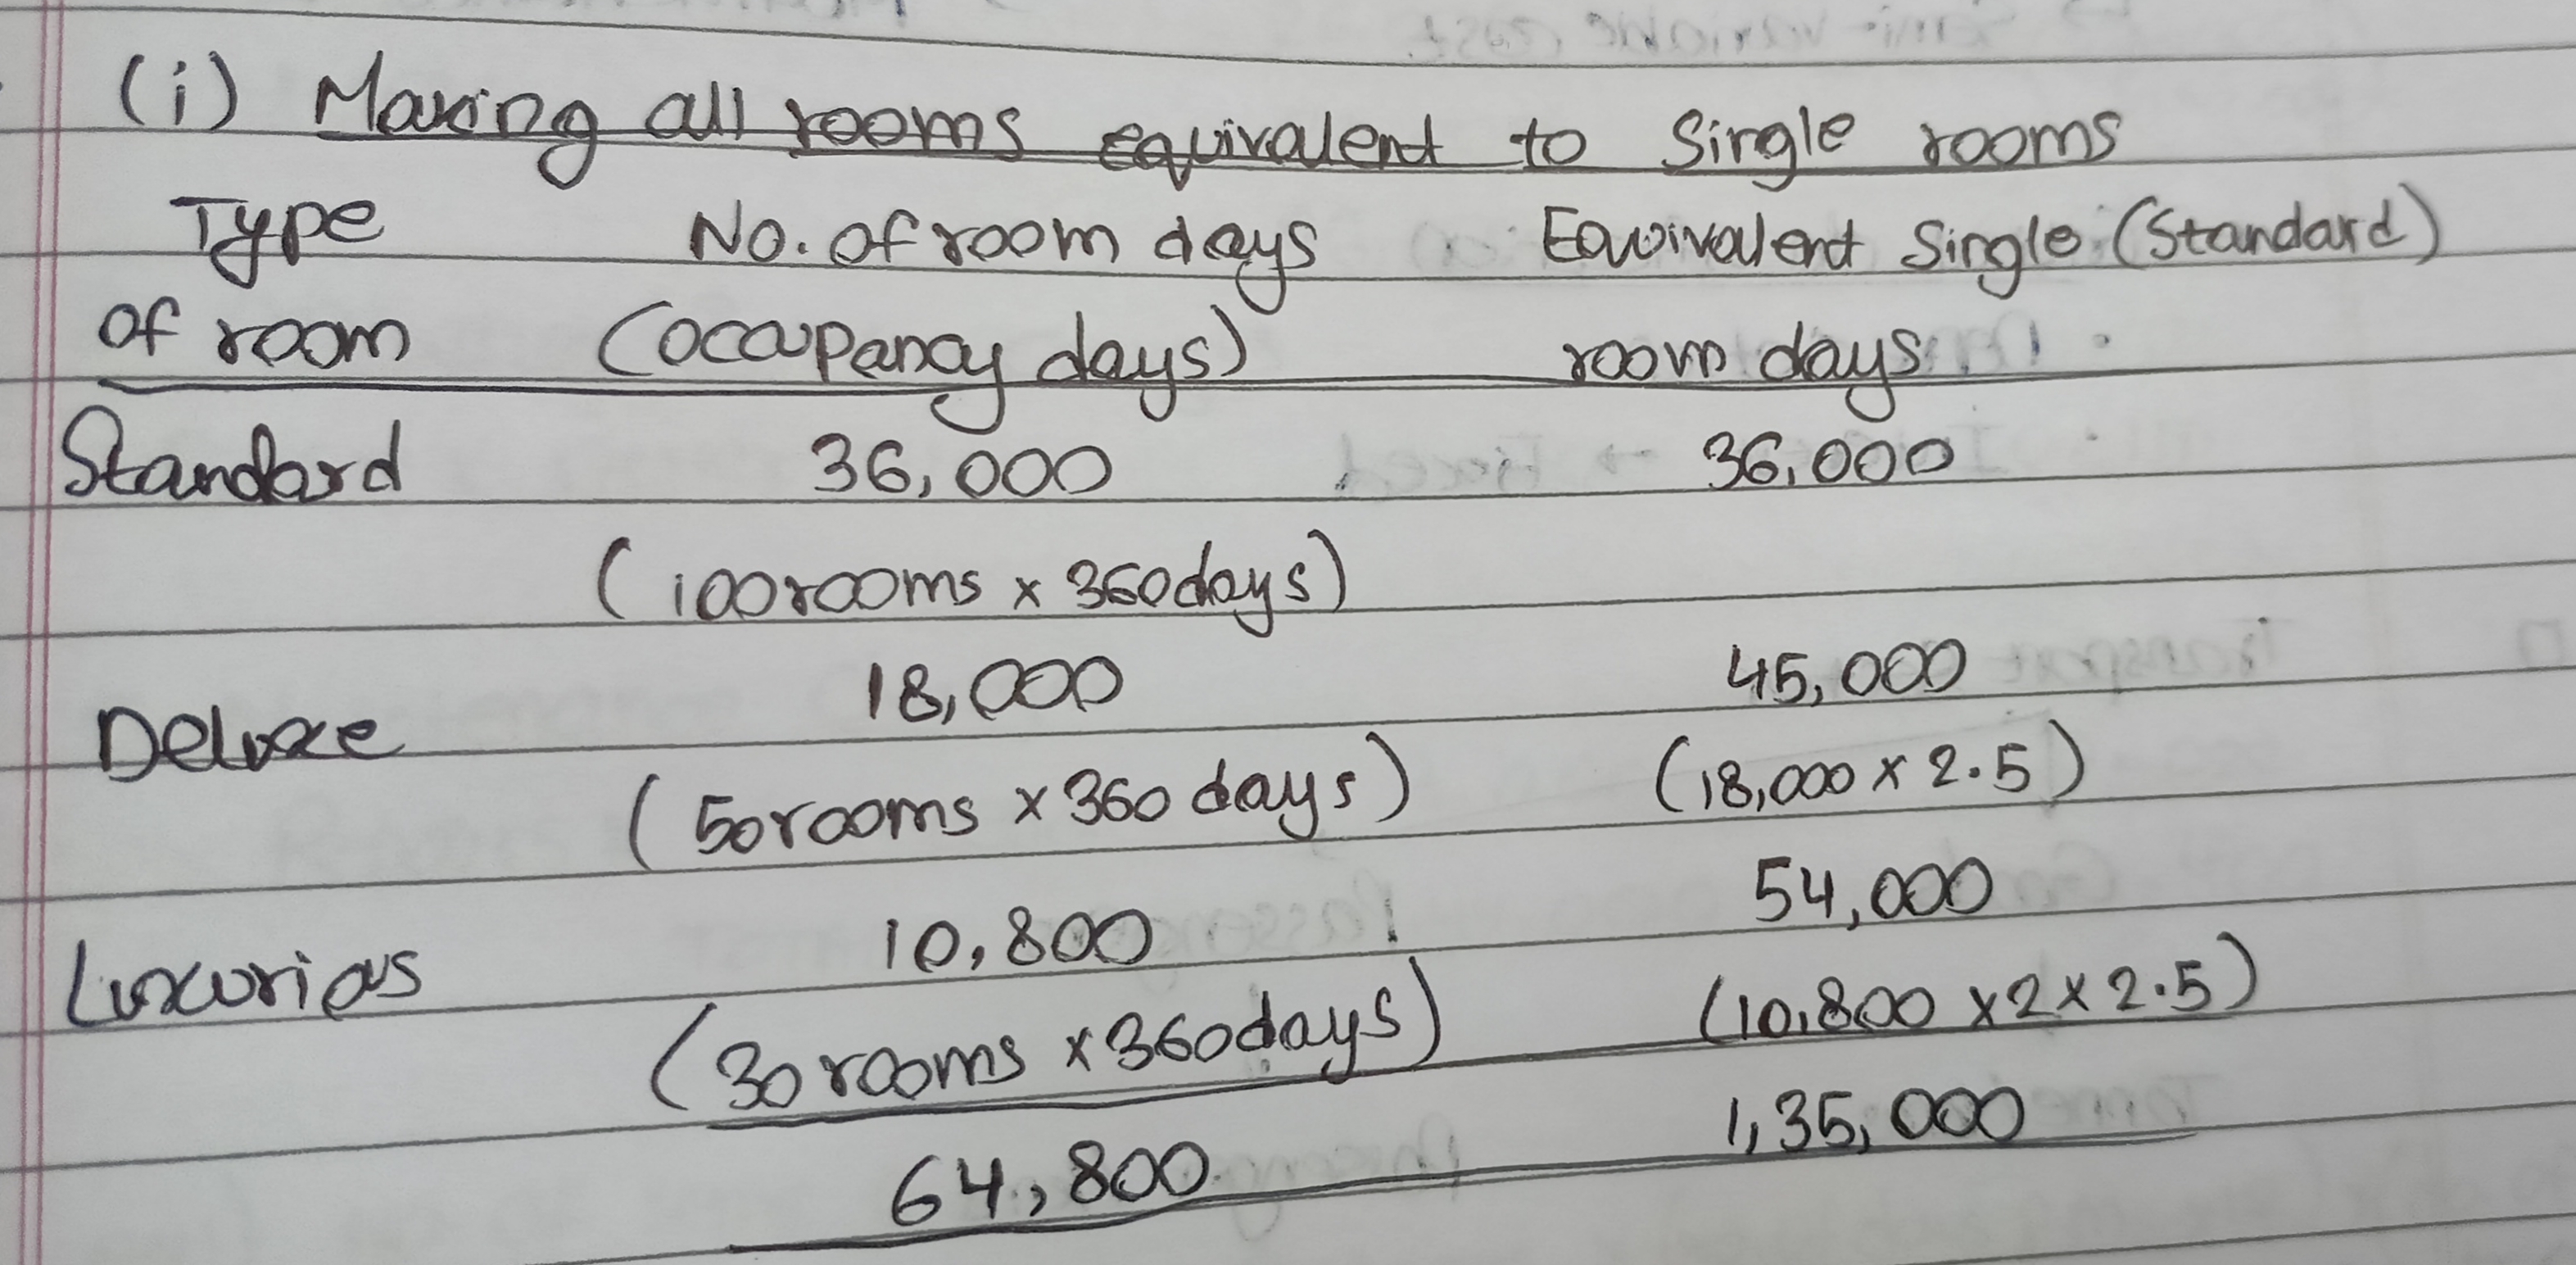 (i) Making all rooms equivalent to Single rooms
Type No. of room days Equivalent Single (Standard)
of room (occupancy days) room days
Standard 36,000 36,000
(100 rooms x 360 days)
18,000 45,000
Deluxe
(50 rooms x 360 days) (18,000 x 2.5)
10,800 54,000
Luxurious
(30 rooms x 360 days) (10,800 x 2 x 2.5)
64,800 1,35,000